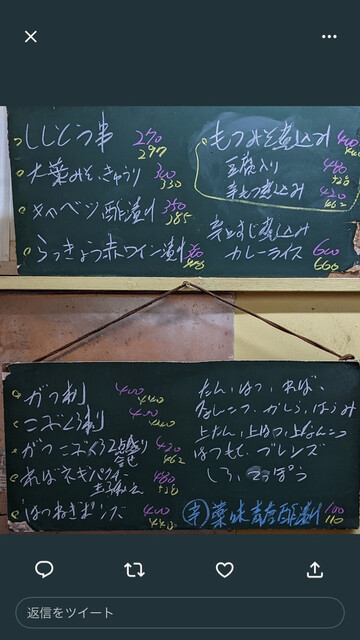 ししとう串 270
297
大葉みそきゅうり 300
330
キャベツ酢漬け 350
385
らっきょう赤ワイン漬け
もつみそ煮込み 400
440
豆腐入り 480
528
辛もつ煮込み 420
462
煮込み
カレーライス 600
660
ガツ刺 400
440
こぶくろ刺 400
440
ガツこぶくろ2点盛り 420
462
ればネギパクチー 480
528
和え
はつねぎポンズ 400
440
たん、はつ、ればー、
なんこつ、かしら、はらみ
上たん、上はつ、上なんこつ
はつもと、ブレンズ
しろ、てっぽう
辛 薬味青唐酢漬け 100
110
返信をツイート